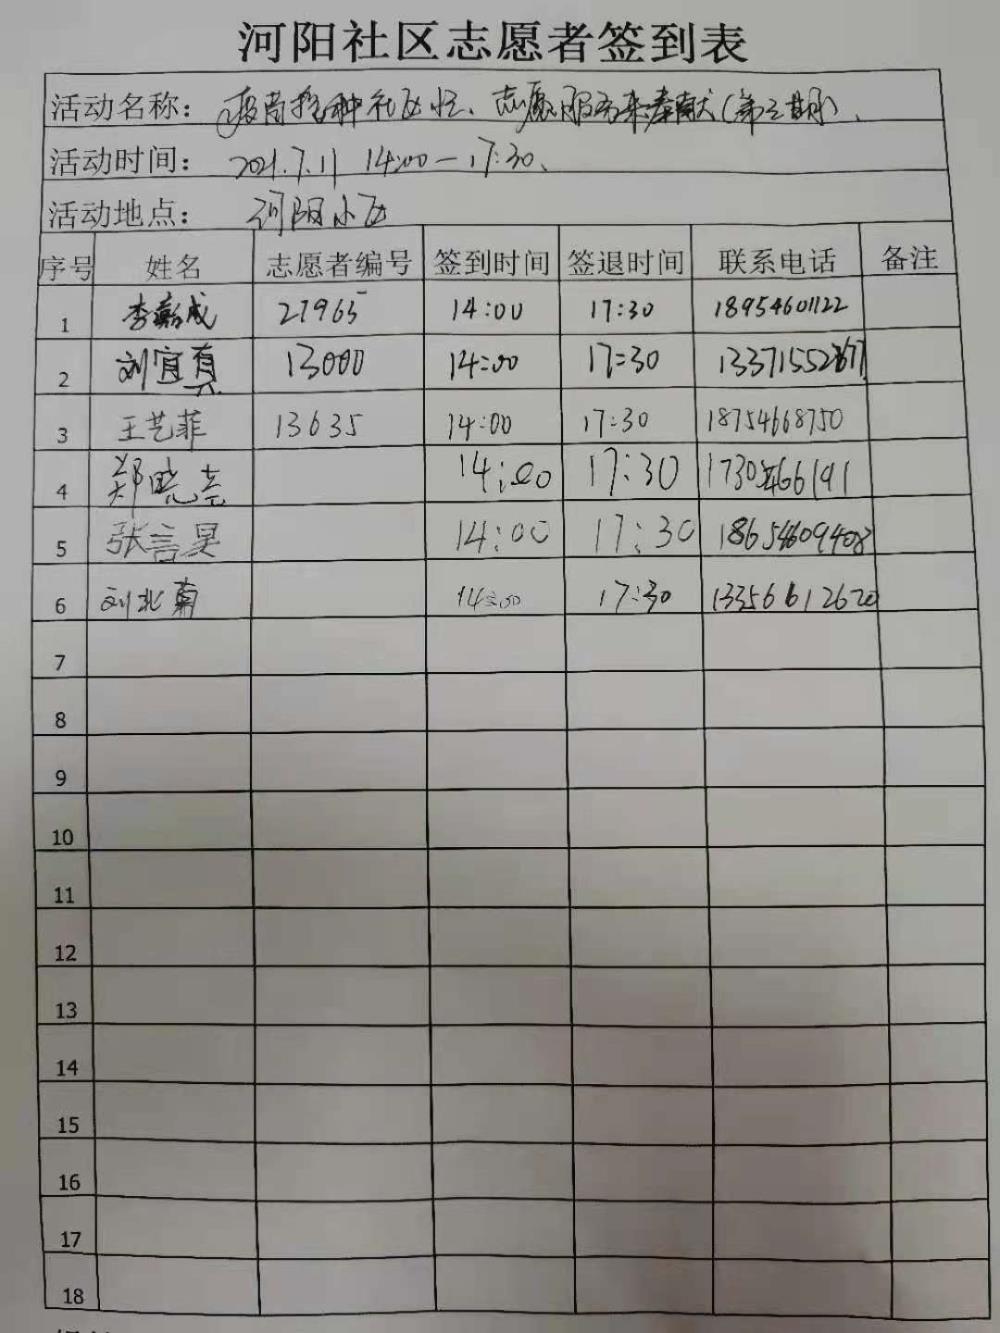 河阳社区志愿者签到表
活动名称: 疫苗接种社区忙、志愿服务来奉献(第三期)、
活动时间: 2021.7.11 14:00—17:30、
活动地点: 河阳小区
序号 姓名 志愿者编号 签到时间 签退时间 联系电话 备注
1 李 成 27965 14:00 17:30 18954601122
2 刘宜真 13000 14:00 17:30
3 王艺菲 13635 14:00 17:30 18754668750
4 郑晓 14:00 17:30
5 张言昊 14:00 17:30 18654609408
6 刘北 14:00 17:30 13356612620
7
8
9
10
11
12
13
14
15
16
17
18